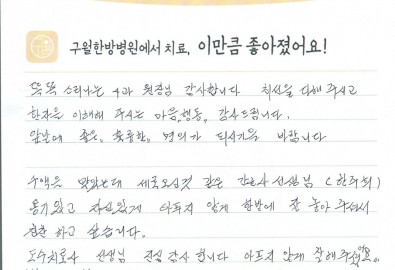 구월한방병원에서 치료, 이만큼 좋아졌어요!
똑똑 소리나는 4과 원장님 감사합니다 최선을 다해 주시고
환자을 이해해 주시는 마음,행동, 감사드립니다.
앞날에 좋은, 훌륭한, 명의가 되시기을 바랍니다
수액을 맞았는데 새로오신것 같은 간호사 선생님
용기있고 자신있게 아프지 않게 한방에 잘 놓아 주셔서
칭찬 하고 싶습니다.
도수치료사 선생님 진심 감사 합니다 아프지 않게 잘해주셨